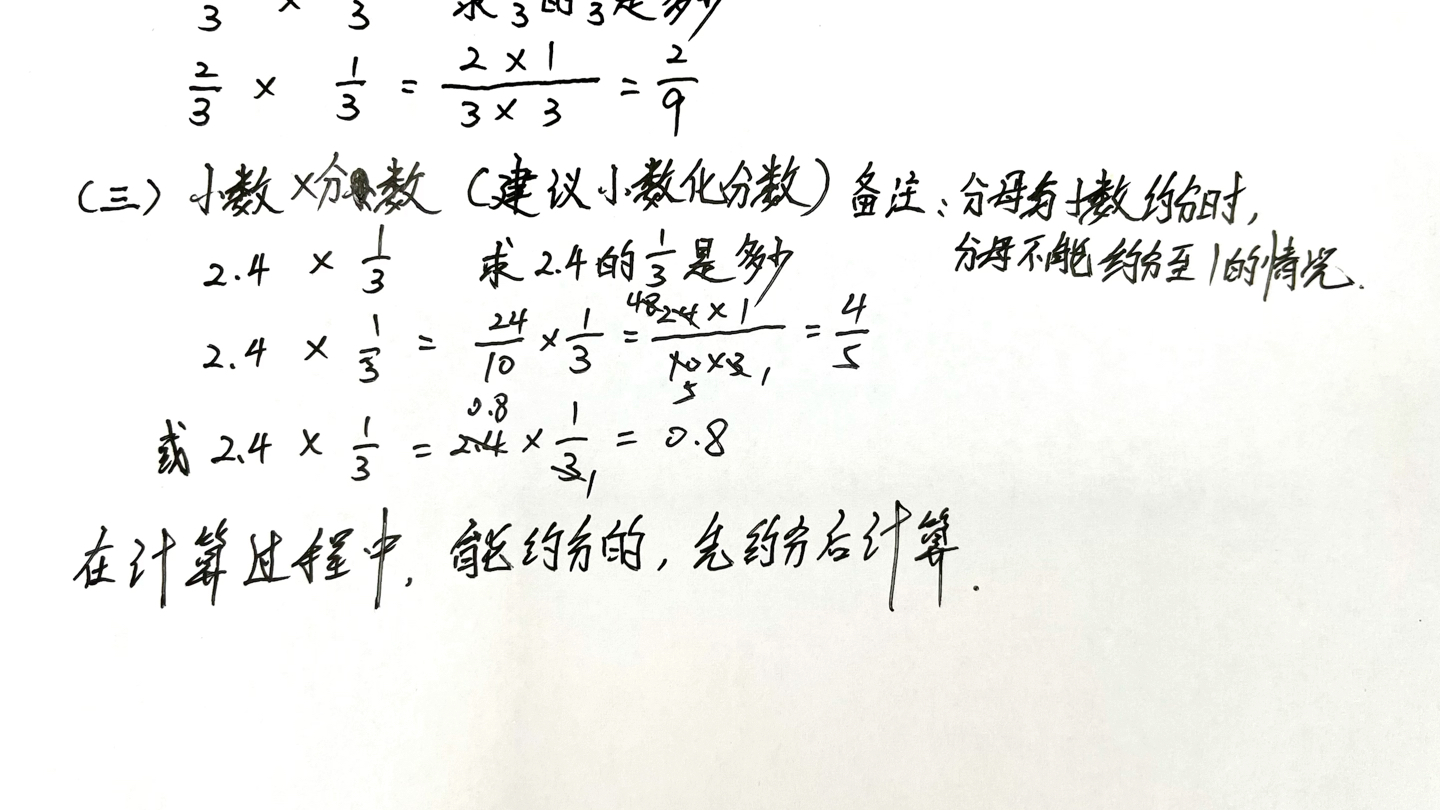 2/3 × 1/3 求2/3的1/3是多少
2/3 × 1/3 = (2×1)/(3×3) = 2/9
(三) 小数×分数 (建议小数化分数) 备注:分母与小数约分时,
分母不能约分至1的情况.
2.4 × 1/3 求2.4的1/3是多少
2.4 × 1/3 = 24/10 × 1/3 = 48 (24×1)/(10×3) 5 1 = 4/5
或 2.4 × 1/3 = 0.8 2.4 × 1/3 1 = 0.8
在计算过程中, 能约分的, 先约分后计算.